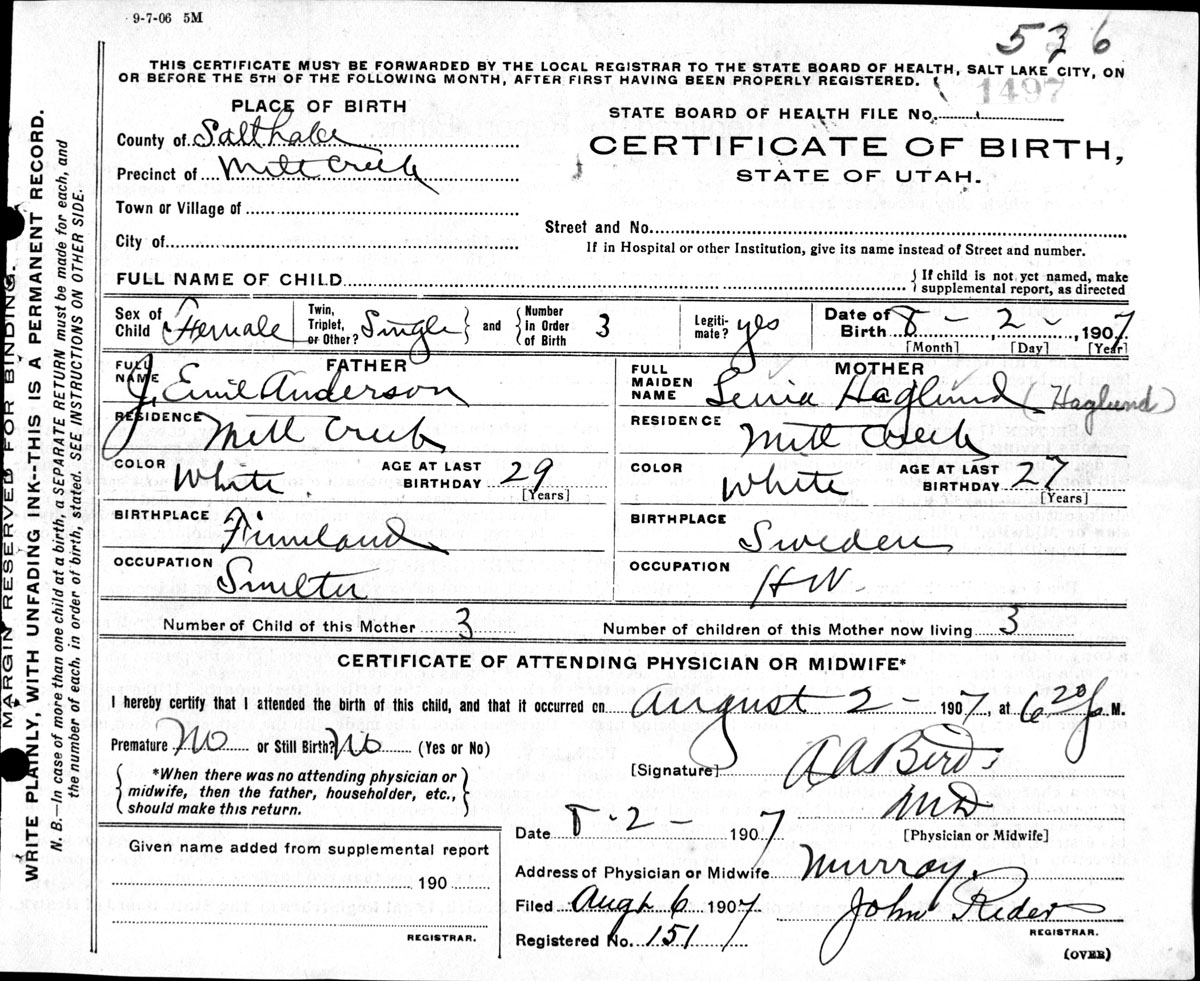 9-7-06 5M
536
THIS CERTIFICATE MUST BE FORWARDED BY THE LOCAL REGISTRAR TO THE STATE BOARD OF HEALTH, SALT LAKE CITY, ON
OR BEFORE THE 5TH OF THE FOLLOWING MONTH, AFTER FIRST HAVING BEEN PROPERLY REGISTERED.
1497
STATE BOARD OF HEALTH FILE No.
CERTIFICATE OF BIRTH,
STATE OF UTAH.
PLACE OF BIRTH
County of Salt Lake
Precinct of Mill Creek
Town or Village of
City of
Street and No.
If in Hospital or other Institution, give its name instead of Street and number.
FULL NAME OF CHILD
{ If child is not yet named, make
supplemental report, as directed
Sex of Child Female
Twin, Triplet, or Other? Single } and { Number in Order of Birth 3
Legiti-mate? yes
Date of Birth 8 - 2 - , 1907
[Month] [Day] [Year]
FATHER
FULL NAME J. Emil Anderson
RESIDENCE Mill Creek
COLOR White AGE AT LAST BIRTHDAY 29
[Years]
BIRTHPLACE Finnland
OCCUPATION Smelter
MOTHER
FULL MAIDEN NAME Haglund (Haglund)
RESIDENCE Mill Creek
COLOR White AGE AT LAST BIRTHDAY 27
[Years]
BIRTHPLACE Sweden
OCCUPATION HW
Number of Child of this Mother 3
Number of children of this Mother now living 3
CERTIFICATE OF ATTENDING PHYSICIAN OR MIDWIFE*
I hereby certify that I attended the birth of this child, and that it occurred on August 2 - 1907, at 6 20 p M.
Premature No or Still Birth? No (Yes or No)
{ *When there was no attending physician or
midwife, then the father, householder, etc.,
should make this return. }
[Signature] A A Bird
MD
[Physician or Midwife]
Date 8-2- 1907
Address of Physician or Midwife Murray.
Filed Aug 6 1907 John Rider
REGISTRAR.
Registered No. 151
(OVER)
Given name added from supplemental report
190
REGISTRAR.
MARGIN RESERVED FOR BINDING.
WRITE PLAINLY, WITH UNFADING INK--THIS IS A PERMANENT RECORD.
N. B.—In case of more than one child at a birth, a SEPARATE RETURN must be made for each, and
the number of each, in order of birth, stated. SEE INSTRUCTIONS ON OTHER SIDE.